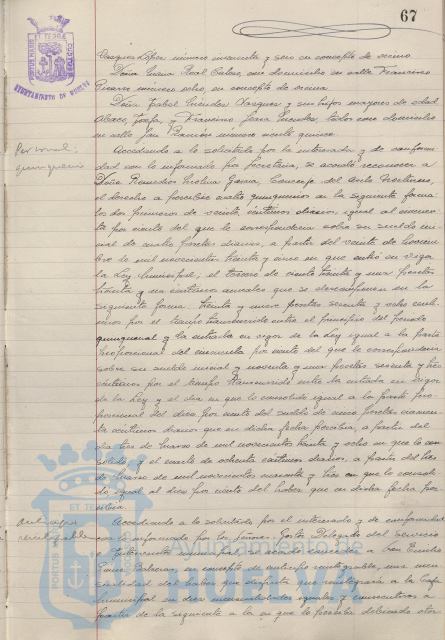 67
Vazquez López número cincuenta y seis en concepto de vecino
Doña Juana Real Cuber, con domicilio en calle Francisco
Pizarro número ocho, en concepto de vecina
Doña Isabel Méndez Vazquez y sus hijos mayores de edad
Josefa, y Francisco Méndez, todos con domicilio
en calle San Ramón número veinte quince
Personal:
quinquenio
Accediendo a lo solicitado por la interesada y de conformi-
dad con lo informado por Secretaría, se acordó reconocer a
Doña Remedios Molina García, Conserje del Asilo Nocturno,
el derecho a percibir cuatro quinquenios en la siguiente forma:
los dos primeros de veinte céntimos diarios, igual al cincuen-
ta por ciento del que le correspondería sobre su sueldo ini-
cial de cuatro pesetas diarias, a partir del veinte de Noviem-
bre de mil novecientos treinta y cinco en que entró en vigor
la Ley Municipal; el tercero de ciento treinta y una pesetas
treinta y un céntimos anuales que se descomponen en la
siguiente forma: treinta y nueve pesetas sesenta y ocho cénti-
mos por el tiempo transcurrido entre el principio del periodo
quinquenal y la entrada en vigor de la Ley igual a la parte
proporcional del cincuenta por ciento del que le correspondería
sobre su sueldo inicial y noventa y una pesetas sesenta y tres
céntimos por el tiempo transcurrido entre la entrada en vigor
de la Ley y el día en que lo consolidó igual a la parte pro-
porcional del diez por ciento del sueldo de cinco pesetas cincuen-
ta céntimos diarios que en dicha fecha percibía, a partir del
día tres de Marzo de mil novecientos treinta y ocho en que lo con-
solidó; y el cuarto de ochenta céntimos diarios, a partir del tres
de Marzo de mil novecientos cuarenta y tres en que lo consoli-
dó igual al diez por ciento del haber que en dicha fecha per-
cibía.
Anticipo
reintegrable
Accediendo a lo solicitado por el interesado y de conformidad
con lo informado por los Señores Gestor Delegado del servicio
e Interventor municipal, se acordó conceder a Don Emilio
en concepto de anticipo reintegrable, una men-
sualidad del haber que disfruta que reintegrará a la Caja
municipal en diez mensualidades iguales y consecutivas a
partir de la siguiente a la en que lo perciba debiendo otor-